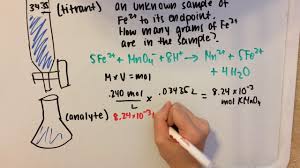 34.35
(titrant)
an unknown sample of
Fe²⁺ to its endpoint.
How many grams of Fe²⁺
are in the sample?
5Fe²⁺ + MnO₄⁻ + 8H⁺ → Mn²⁺ + 5Fe³⁺
+ 4H₂O
M × V = mol
.240 mol/L × .03435L = 8.24×10⁻³
mol KMnO₄
(analyte) 8.24×10⁻³